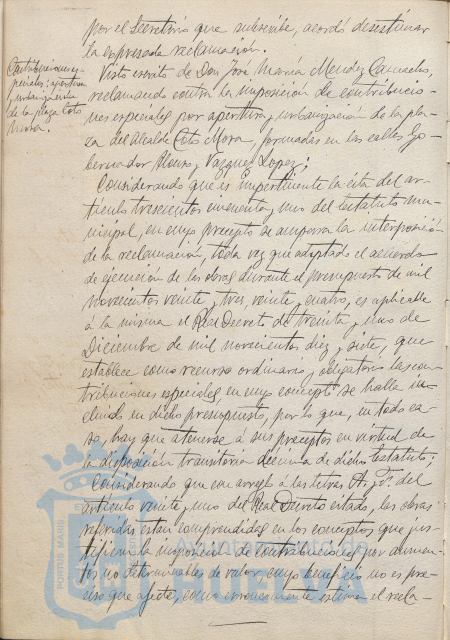 por el Secretario que subscribe, acordó desestimar
la expresada reclamación.
Contribuciones es-
peciales: apertura
y urbanización
de la plaza Coto
Mora.
Visto escrito de Don José María Mendez Camacho,
reclamando contra la imposición de contribucio-
nes especiales por apertura y urbanización de la pla-
za del Alcalde Coto Mora, formadas en las calles Go-
bernador Alonso y Vazquez Lopez;
Considerando que es impertinente la cita del ar-
tículo trescientos cincuenta y uno del Estatuto mu-
nicipal, en cuyo precepto se ampara la interposición
de la reclamación, toda vez que adoptado el acuerdo
de ejecución de las obras durante el presupuesto de mil
novecientos veinte y tres veinte y cuatro, es aplicable
á la misma el Real Decreto de treinta y uno de
Diciembre de mil novecientos diez y siete, que
establece como recurso ordinario y obligatorio las con-
tribuciones especiales, en cuyo concepto se halla in-
cluido en dicho presupuesto, por lo que, en todo ca-
so, hay que atenerse á sus preceptos en virtud de
la disposición transitoria décima de dicho Estatuto;
Considerando que con arreglo á las letras A. y F. del
artículo veinte y uno del Real Decreto citado, las obras
referidas están comprendidas en los conceptos que jus-
tifican la imposición de contribuciones por aumen-
tos no determinables de valor cuyo beneficio no es pre-
ciso que afecte, como erroneamente estima el recla-
PORTUS MARIS